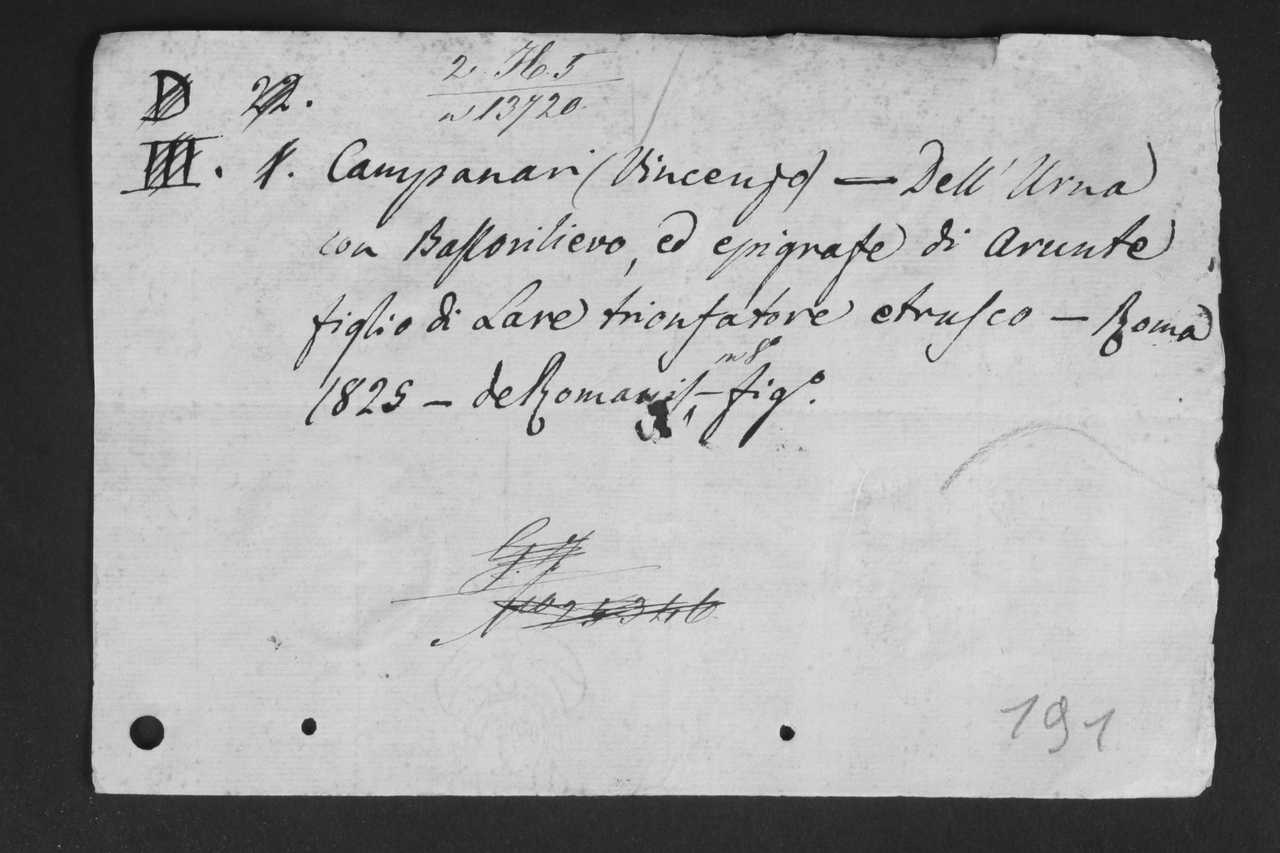 D 22.
2. H. 5
n 13720
III. 1. Campanari (Vincenzo) — Dell' Urna
con Bassorilievo, ed epigrafe di Arunte
figlio di Lare trionfatore etrusco — Roma
in 8º
1825 — de Romanis — figº.
Nº 25346
191